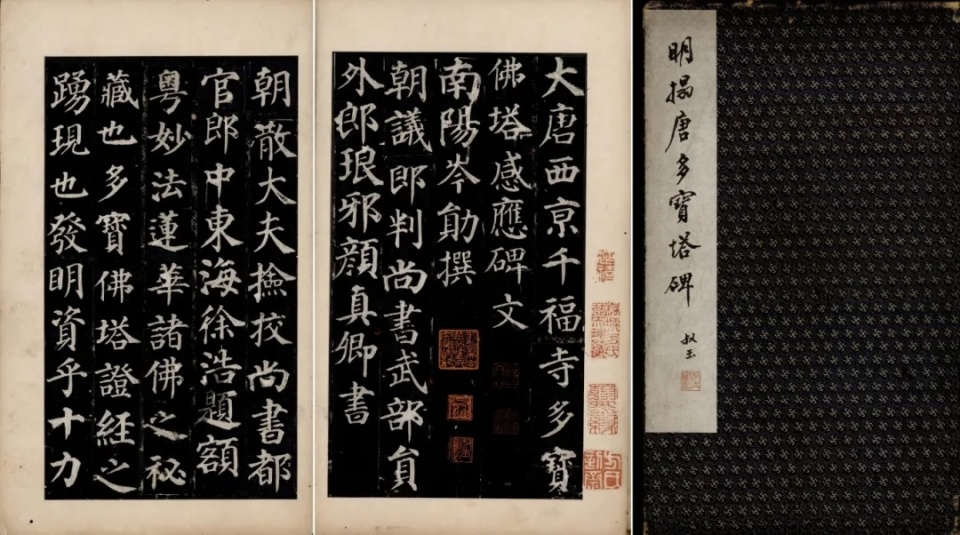 明搨唐多寶塔碑
叔玉
大唐西京千福寺多寶
佛塔感應碑文
南陽岑勛撰
朝議郎判尚書武部員
外郎琅邪顏真卿書
朝散大夫撿挍尚書都
官郎中東海徐浩題額
粵妙法蓮華諸佛之祕
藏也多寶佛塔證經之
踴現也發明資乎十力